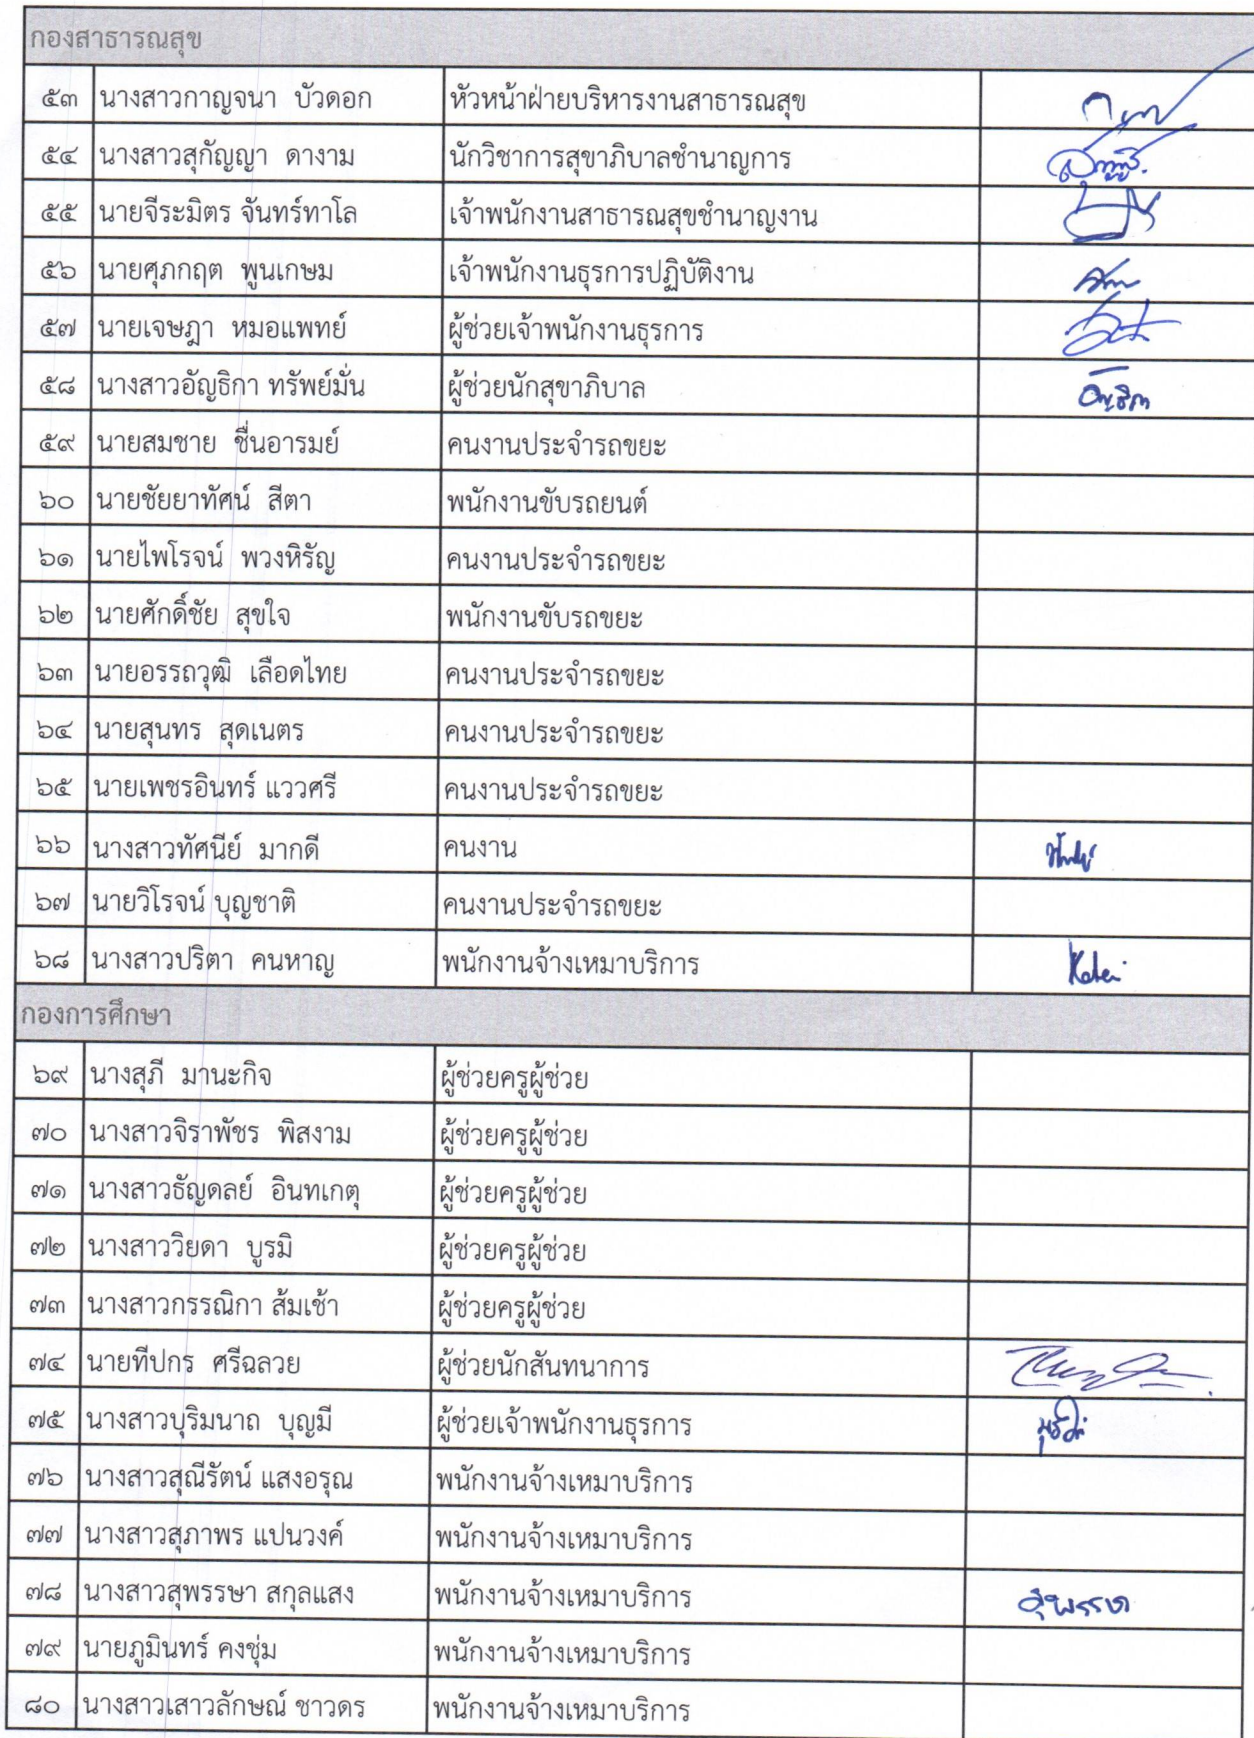 กองสาธารณสุข
๕๓ นางสาวกาญจนา บัวดอก หัวหน้าฝ่ายบริหารงานสาธารณสุข
๕๔ นางสาวสุกัญญา ดางาม นักวิชาการสุขาภิบาลชำนาญการ
๕๕ นายจีระมิตร จันทร์ทาโล เจ้าพนักงานสาธารณสุขชำนาญงาน
๕๖ นายศุภกฤต พูนเกษม เจ้าพนักงานธุรการปฏิบัติงาน
๕๗ นายเจษฎา หมอแพทย์ ผู้ช่วยเจ้าพนักงานธุรการ
๕๘ นางสาวอัญธิกา ทรัพย์มั่น ผู้ช่วยนักสุขาภิบาล อัญธิกา
๕๙ นายสมชาย ชื่นอารมย์ คนงานประจำรถขยะ
๖๐ นายชัยยาทัศน์ สีตา พนักงานขับรถยนต์
๖๑ นายไพโรจน์ พวงหิรัญ คนงานประจำรถขยะ
๖๒ นายศักดิ์ชัย สุขใจ พนักงานขับรถขยะ
๖๓ นายอรรถวุฒิ เลือดไทย คนงานประจำรถขยะ
๖๔ นายสุนทร สุดเนตร คนงานประจำรถขยะ
๖๕ นายเพชรอินทร์ แววศรี คนงานประจำรถขยะ
๖๖ นางสาวทัศนีย์ มากดี คนงาน
๖๗ นายวิโรจน์ บุญชาติ คนงานประจำรถขยะ
๖๘ นางสาวปริตา คนหาญ พนักงานจ้างเหมาบริการ
กองการศึกษา
๖๙ นางสุภี มานะกิจ ผู้ช่วยครูผู้ช่วย
๗๐ นางสาวจิราพัชร พิสงาม ผู้ช่วยครูผู้ช่วย
๗๑ นางสาวธัญดลย์ อินทเกตุ ผู้ช่วยครูผู้ช่วย
๗๒ นางสาววิยดา บูรมิ ผู้ช่วยครูผู้ช่วย
๗๓ นางสาวกรรณิกา ส้มเช้า ผู้ช่วยครูผู้ช่วย
๗๔ นายทีปกร ศรีฉลวย ผู้ช่วยนักสันทนาการ
๗๕ นางสาวบุริมนาถ บุญมี ผู้ช่วยเจ้าพนักงานธุรการ
๗๖ นางสาวสุณีรัตน์ แสงอรุณ พนักงานจ้างเหมาบริการ
๗๗ นางสาวสุภาพร แปนวงค์ พนักงานจ้างเหมาบริการ
๗๘ นางสาวสุพรรษา สกุลแสง พนักงานจ้างเหมาบริการ สุพรรษา
๗๙ นายภูมินทร์ คงชุ่ม พนักงานจ้างเหมาบริการ
๘๐ นางสาวเสาวลักษณ์ ชาวดร พนักงานจ้างเหมาบริการ